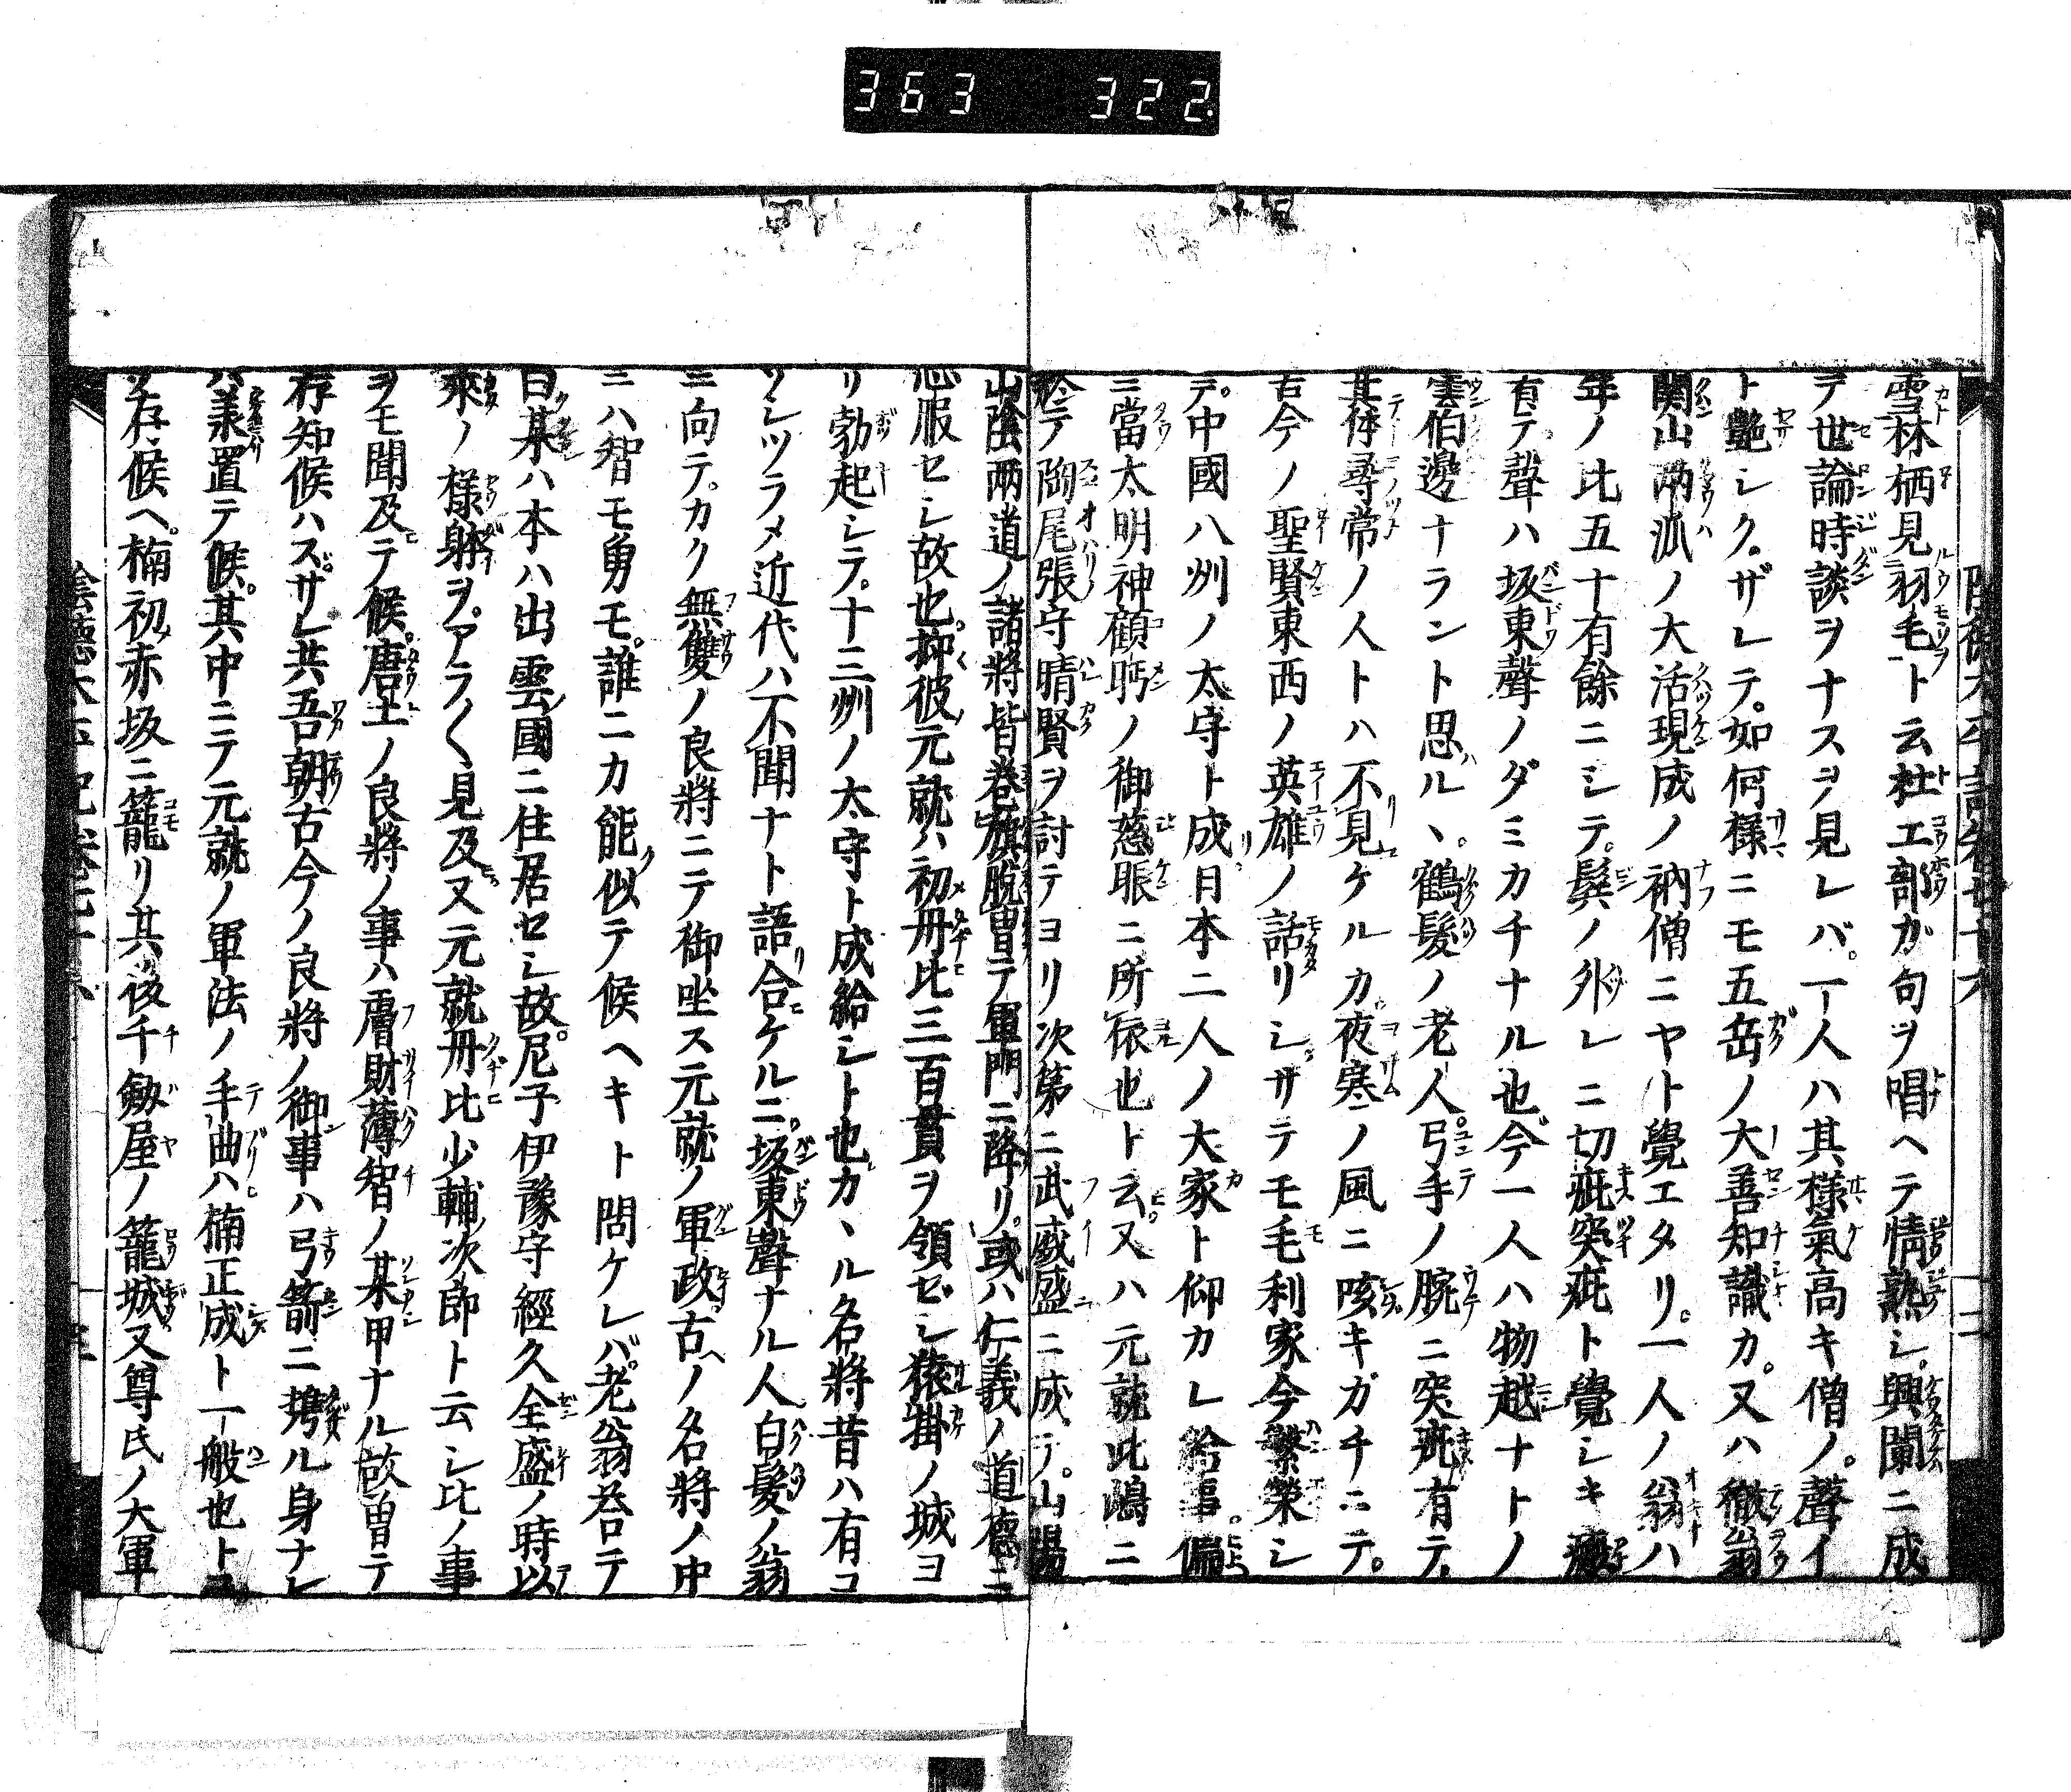 363 322
雪林栖見羽毛ト云杜工部カ句ヲ唱ヘテ情熟シ興闌ニ成
テ世論時談ヲナスヲ見レバ一人ハ其様氣高キ僧ノ聲イ
ト艶シクザレテ如何様ニモ五岳ノ大善知識カ又ハ徹翁
関山兩派ノ大活現成ノ衲僧ニヤト覺エタリ一人ノ翁ハ
年ノ比五十有餘ニシテ鬂ノ外レニ切疵突疵ト覺シキ瘢
有テ聲ハ坂東聲ノダミカチナル也今一人ハ物越ナトノ
雲伯邊ナラント思ル丶鶴髪ノ老人弓手ノ腕ニ突疵有テ
其体尋常ノ人トハ不見ケルカ夜寒ノ風ニ咳キガチニテ
古今ノ聖賢東西ノ英雄ノ話リシサテモ毛利家今繁榮シ
テ中國八州ノ太守ト成日本二人ノ大家ト仰カレ給事偏
ニ當太明神顧眄ノ御慈眼ニ所依也ト云又ハ元就此嶋ニ
於テ陶尾張守晴賢ヲ討テヨリ次第ニ武威盛ニ成テ山陽
山陰兩道ノ諸將皆巻旗脱冑テ軍門ニ降リ或ハ仁義ノ道德ニ
服セシ故也抑彼元就ハ初丹比三百貫ヲ領ゼシ猿掛ノ城ヨ
リ勃起シテ十三州ノ太守ト成給シト也カ丶ル名將昔ハ有コ
ツレツラメ近代ハ不聞ナト語合ケルニ坂東聲ナル人白髪ノ翁
ニ向テカク無雙ノ良將ニテ御坐ス元就ノ軍政古ノ名將ノ中
ニハ智モ勇モ誰ニカ能似テ候ヘキト問ケレバ老翁答テ
曰某ハ本ハ出雲國ニ住居セシ故尼子伊豫守經久全盛ノ時以
來ノ様躰ヲアラ〱見及又元就丹比少輔次郎ト云シ比ノ事
ヲモ聞及テ候唐土ノ良將ノ事ハ膚財薄智ノ某甲ナル故曽テ
存知候ハスサレ共吾朝古今ノ良將ノ御事ハ弓箭ニ携ル身ナレ
ハ兼置テ候其中ニテ元就ノ軍法ノ手曲ハ楠正成ト一般也トコ
ソ存候ヘ楠初赤坂ニ籠リ其後千劔屋ノ籠城又尊氏ノ大軍